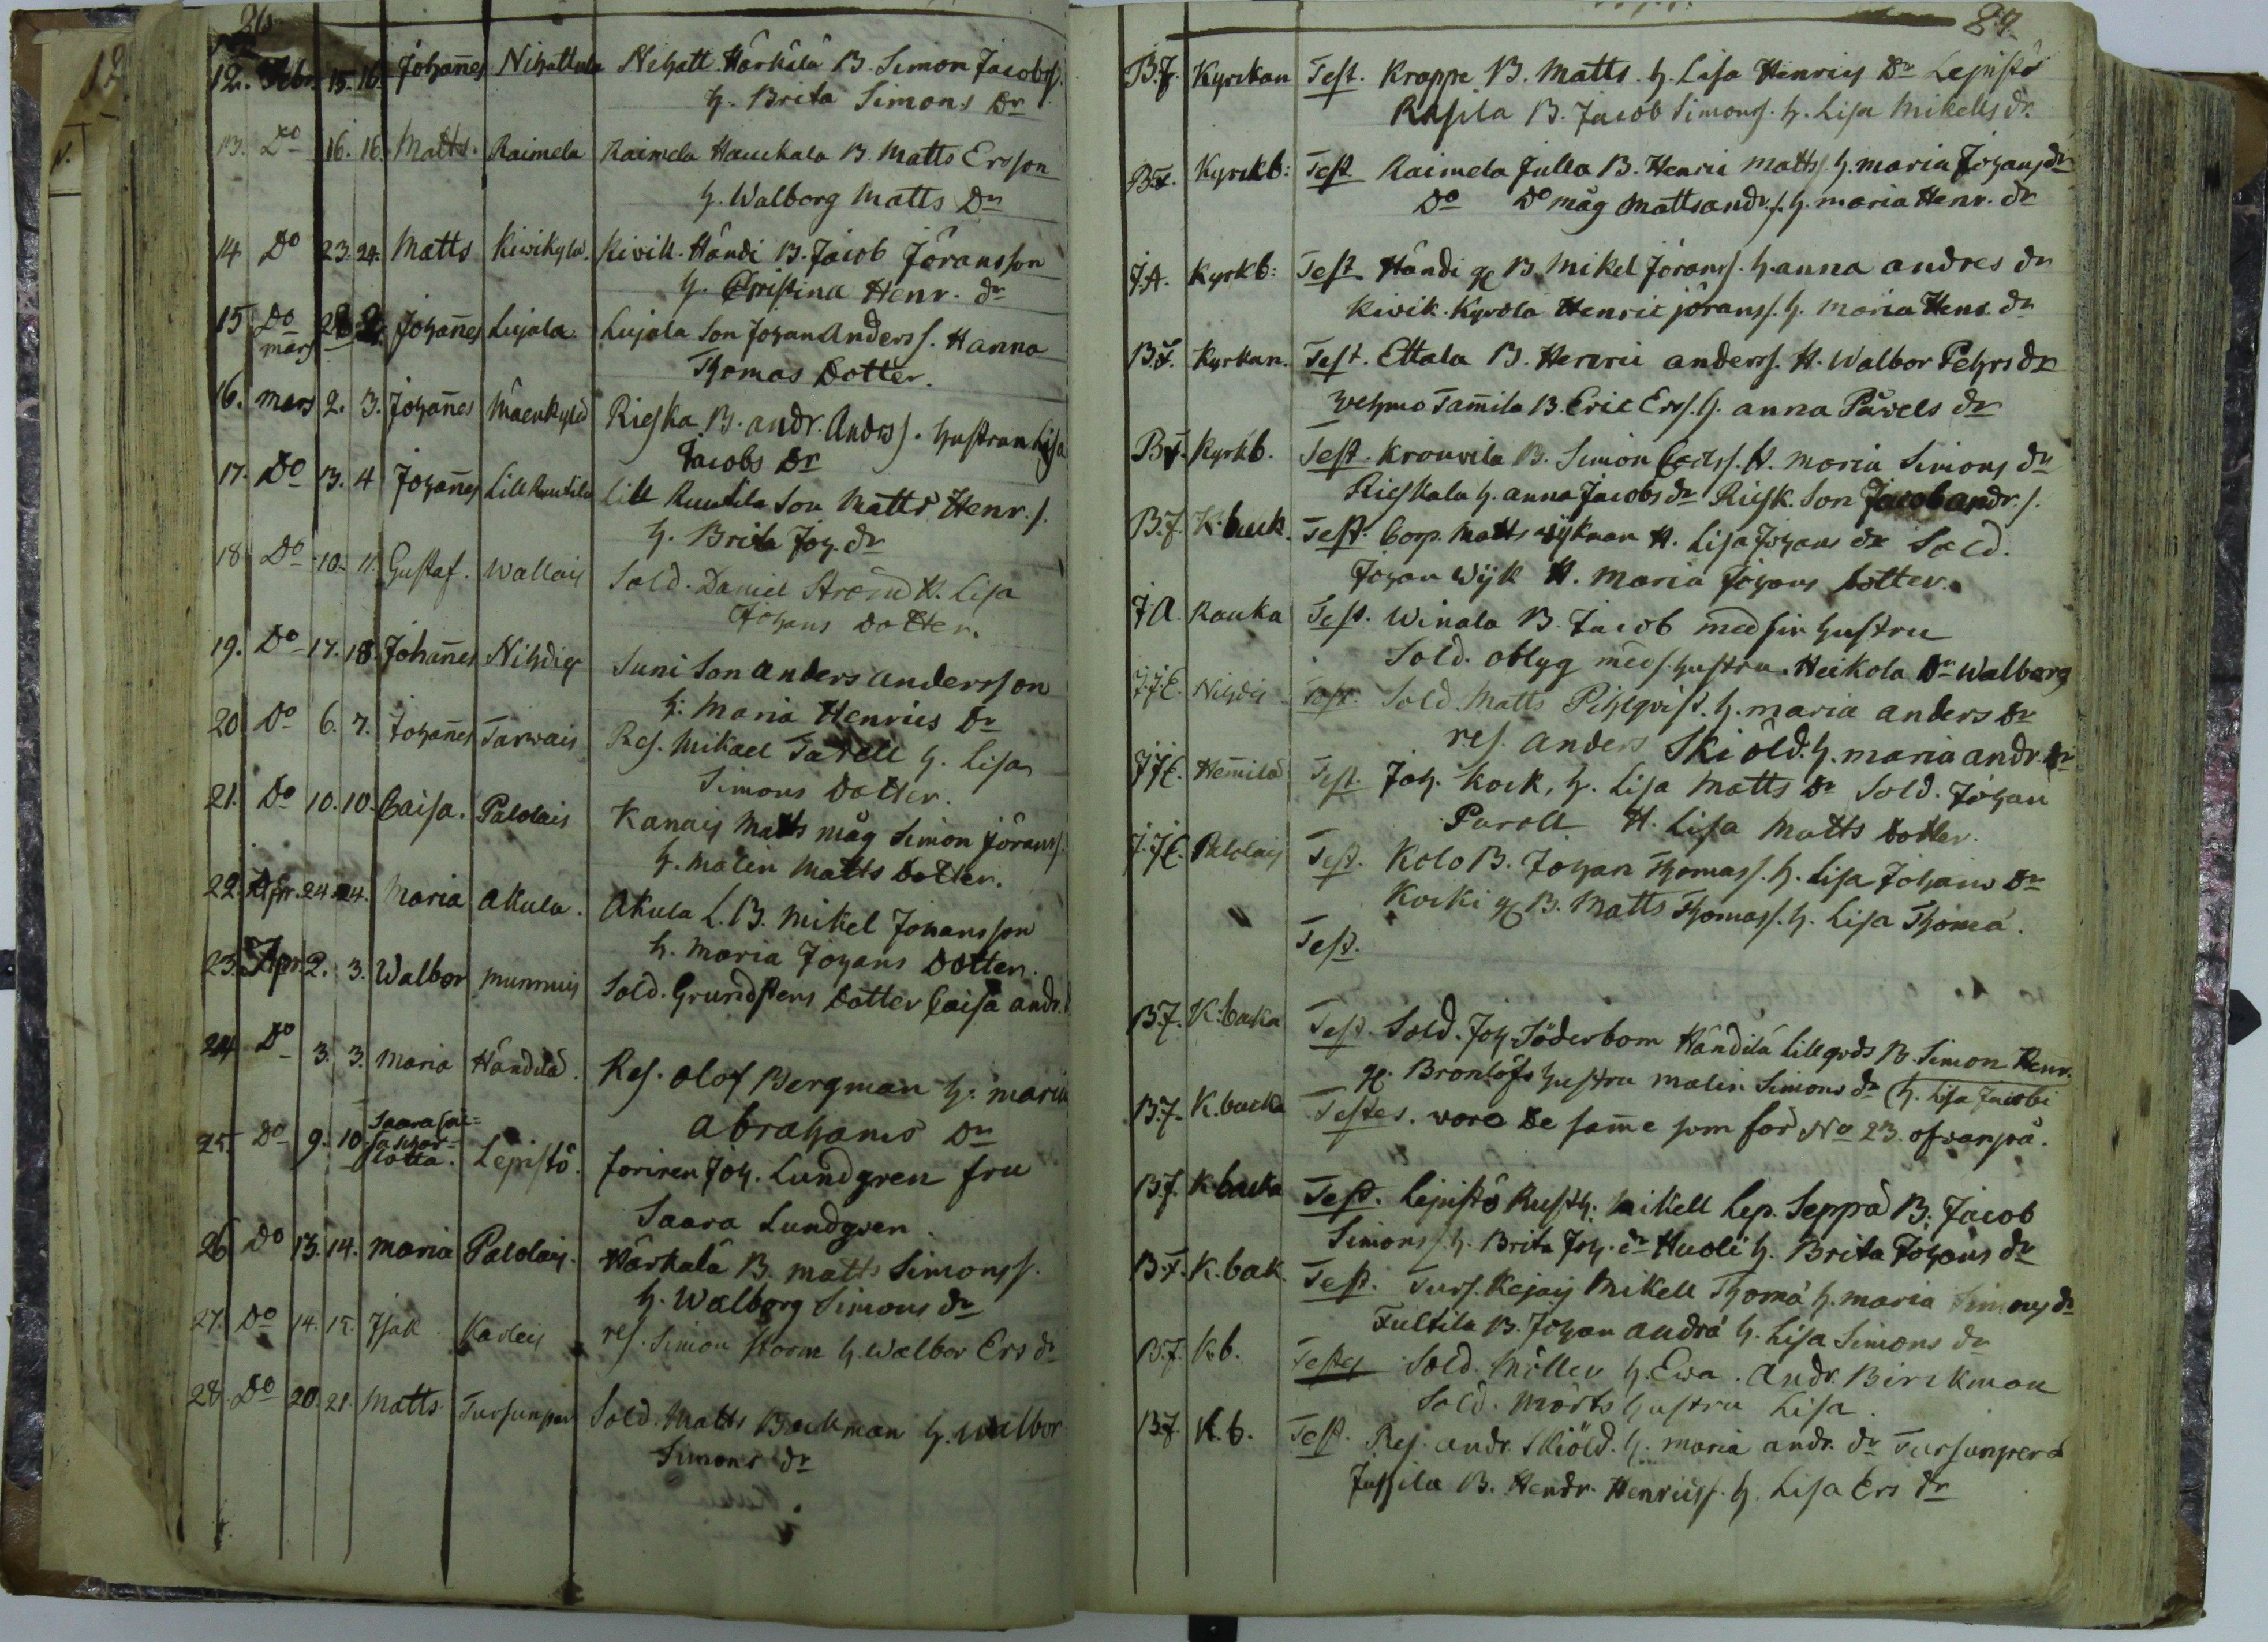 86
12. Febr. 15. 16. Johañes Nihattula Nihatt. Härkälä B. Simon Jacobs.
h. Brita Simons Dr
13. Do 16. 16. Matts. Raimela Raimela Haukala B. Matts Ersson
h. Walborg Matts Dr
14 Do 23. 24. Matts Kiwikylä. Kivik. Händi B. Jacob Göransson
h. Christina Henr. dr
15 Do Johañes Lujala. Lujala Son Johan Anders s. Hanna
mars
Thomas Dotter.
16. mars 2. 3. Johañes Mäenkylä Rieska B. andr. Anders s. hustran Lisa
Jacobs Dr
17. Do 13. 4 Johañes Lill Ruutila Lill Ruutila Son Matts Henr. s.
h. Brita Joh. dr
18 Do 10. 11. Gustaf. Wallais Sold. Daniel Ström H. Lisa
Johans Dotter.
19. Do 17. 18. Johañes Nihdis Suni Son Anders Andersson
h. Maria Henrics Dr
20 Do 6. 7. Johañes Tarwais Res. Mikael Tavell h. Lisa
Simons Dotter.
21. Do 10. 10. Caisa. Palolais Kanais Matts måg Simon Görans s.
h. Malin Matts Dotter.
22. Apr. 24. 24. Maria Akula. Akula L. B. Mikel Johansson
h. Maria Johans Dotter.
23. Apr. 2. 3. Walbor mummis Sold. Grundstens Dotter Caisa andr.
24 Do 3. 3. Maria Händilä. Res. Olof Bergman h. Maria
Abrahams Dr
25. Do 9. 10. Saara Cai=
sa Schar=
lotta. Lepistö. foriren Joh. Lundgren fru
Saara Lundgren.
26 Do 13. 14. Maria Palolais. Härkälä B. Matts Simons s.
h. Walborg Simons dr
27. Do 14. 15. Isak Karleis res. Simon Storm h. Walbor Ers dr
28. Do 20. 21. Matts. Tursunper Sold. Matts Backman h. Walbor
Simons dr
87.
B.F. Kyrckan Test. Krappe B. Matts. h. Lisa Henrics Dr Lepistö
Rasila B. Jacob Simons s. h. Lisa Mikells dr.
B.F. Kyrckb: Test Raimela Julla B. Henric Matts s. h. Maria Johans dr
Do Do måg Matts andr. s. h. Maria Henr. dr
J.A. Kyrkb: Test Händi B. Mikel Görans s. h. Anna Andres dr
Kivik. Kyrölä Henric Görans s. h. Maria Henr. dr
B.F. Kyrkan. Test. Ettala B. Henric Anders s. H. Walbor Pehrs dr
Wehmo Tam̃ila B. Eric Ers s. h. Anna Påvels dr
B.F. Kyrkb. Test. Krouvila B. Simon H. Maria Simons dr
Rieskala h. Anna Jacobs dr Riesk. Son Jacob andr. s.
B.F. K. back. Test. Corp. Matts Wijkman H. Lisa Johans dr Sold.
Johan Wijk H. Maria Johans Dotter.
J.A. Rauka Test. Winala B. Jacob med sin hustru
Sold. Oblyg med s. hustru. Heikola Dr Walborg
J.J.E. Nihdis Test. Sold. Matts Pihlqvist. h. Maria Anders Dr
res. Anders Skiöld. h. Maria andr. dr
J.J.E. Hem̃ilä Test. Joh. Kock, h. Lisa Matts Dr Sold. Johan
Paroll H. Lisa Matts Dotter.
J.J.E. Palolais Test. Kolo B. Johan Thomas s. h. Lisa Johans Dr
Korki B. Matts Thomas s. h. Lisa Thomæ.
Test.
B.F. K. backa Test. Sold. Joh. Söderbom Händilä Lillgrds B. Simon Henr.
Bronlöfs hustru Malin Simons dr (h. Lisa Jacobi
B.F. K. backa Testes. woro De sam̃e som för No 23. ofvanpå.
B.F. K backa Test. Lepistö Rusth. Mikell Lep. Seppä B. Jacob
Simons s. h. Brita Joh. dr Huoli h. Brita Johans dr
B.F. K. bak. Test. Turs. Kejais Mikell Thomæ h. Maria Simons dr
Tultila B. Johan Andræ h. Lisa Simons dr
B.F. K. b. Testes Sold. Möller h. Ewa. Andr. Birckman
Sold. Mörts hustru Lisa.
B.F. K. b. Test. Res. andr. Skiöld. h. Maria andr. dr Tursunperä
Jussila B. Hendr. Henrics s. h. Lisa Ers dr